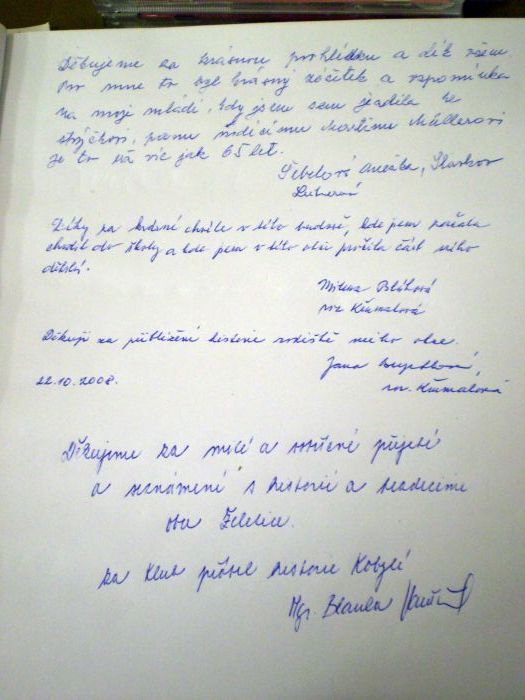 Děkujeme za krásnou prohlídku a dík všem
Pro mne to byl krásný zážitek a vzpomínka
na moje mládí, kdy jsem sem jezdila ke
strýčkovi, panu řídícímu Martinu Müllerovi
Je to už víc jak 65 let.
Anežka, Slavkov
Díky za krásné chvíle v této budově, kde jsem začala
chodit do školy a kde jsem v této obci prožila část svého
dětství.
Milena Bláhová
roz. Křumalová
Děkuji za přiblížení historie rodiště mého otce.
Jana
22.10.2008.
roz. Křumalová
Děkujeme za milé a vstřícné přijetí
a seznámení s historií a
obce Želetice.
za klub přátel historie Kobylí
Mgr. Blanka